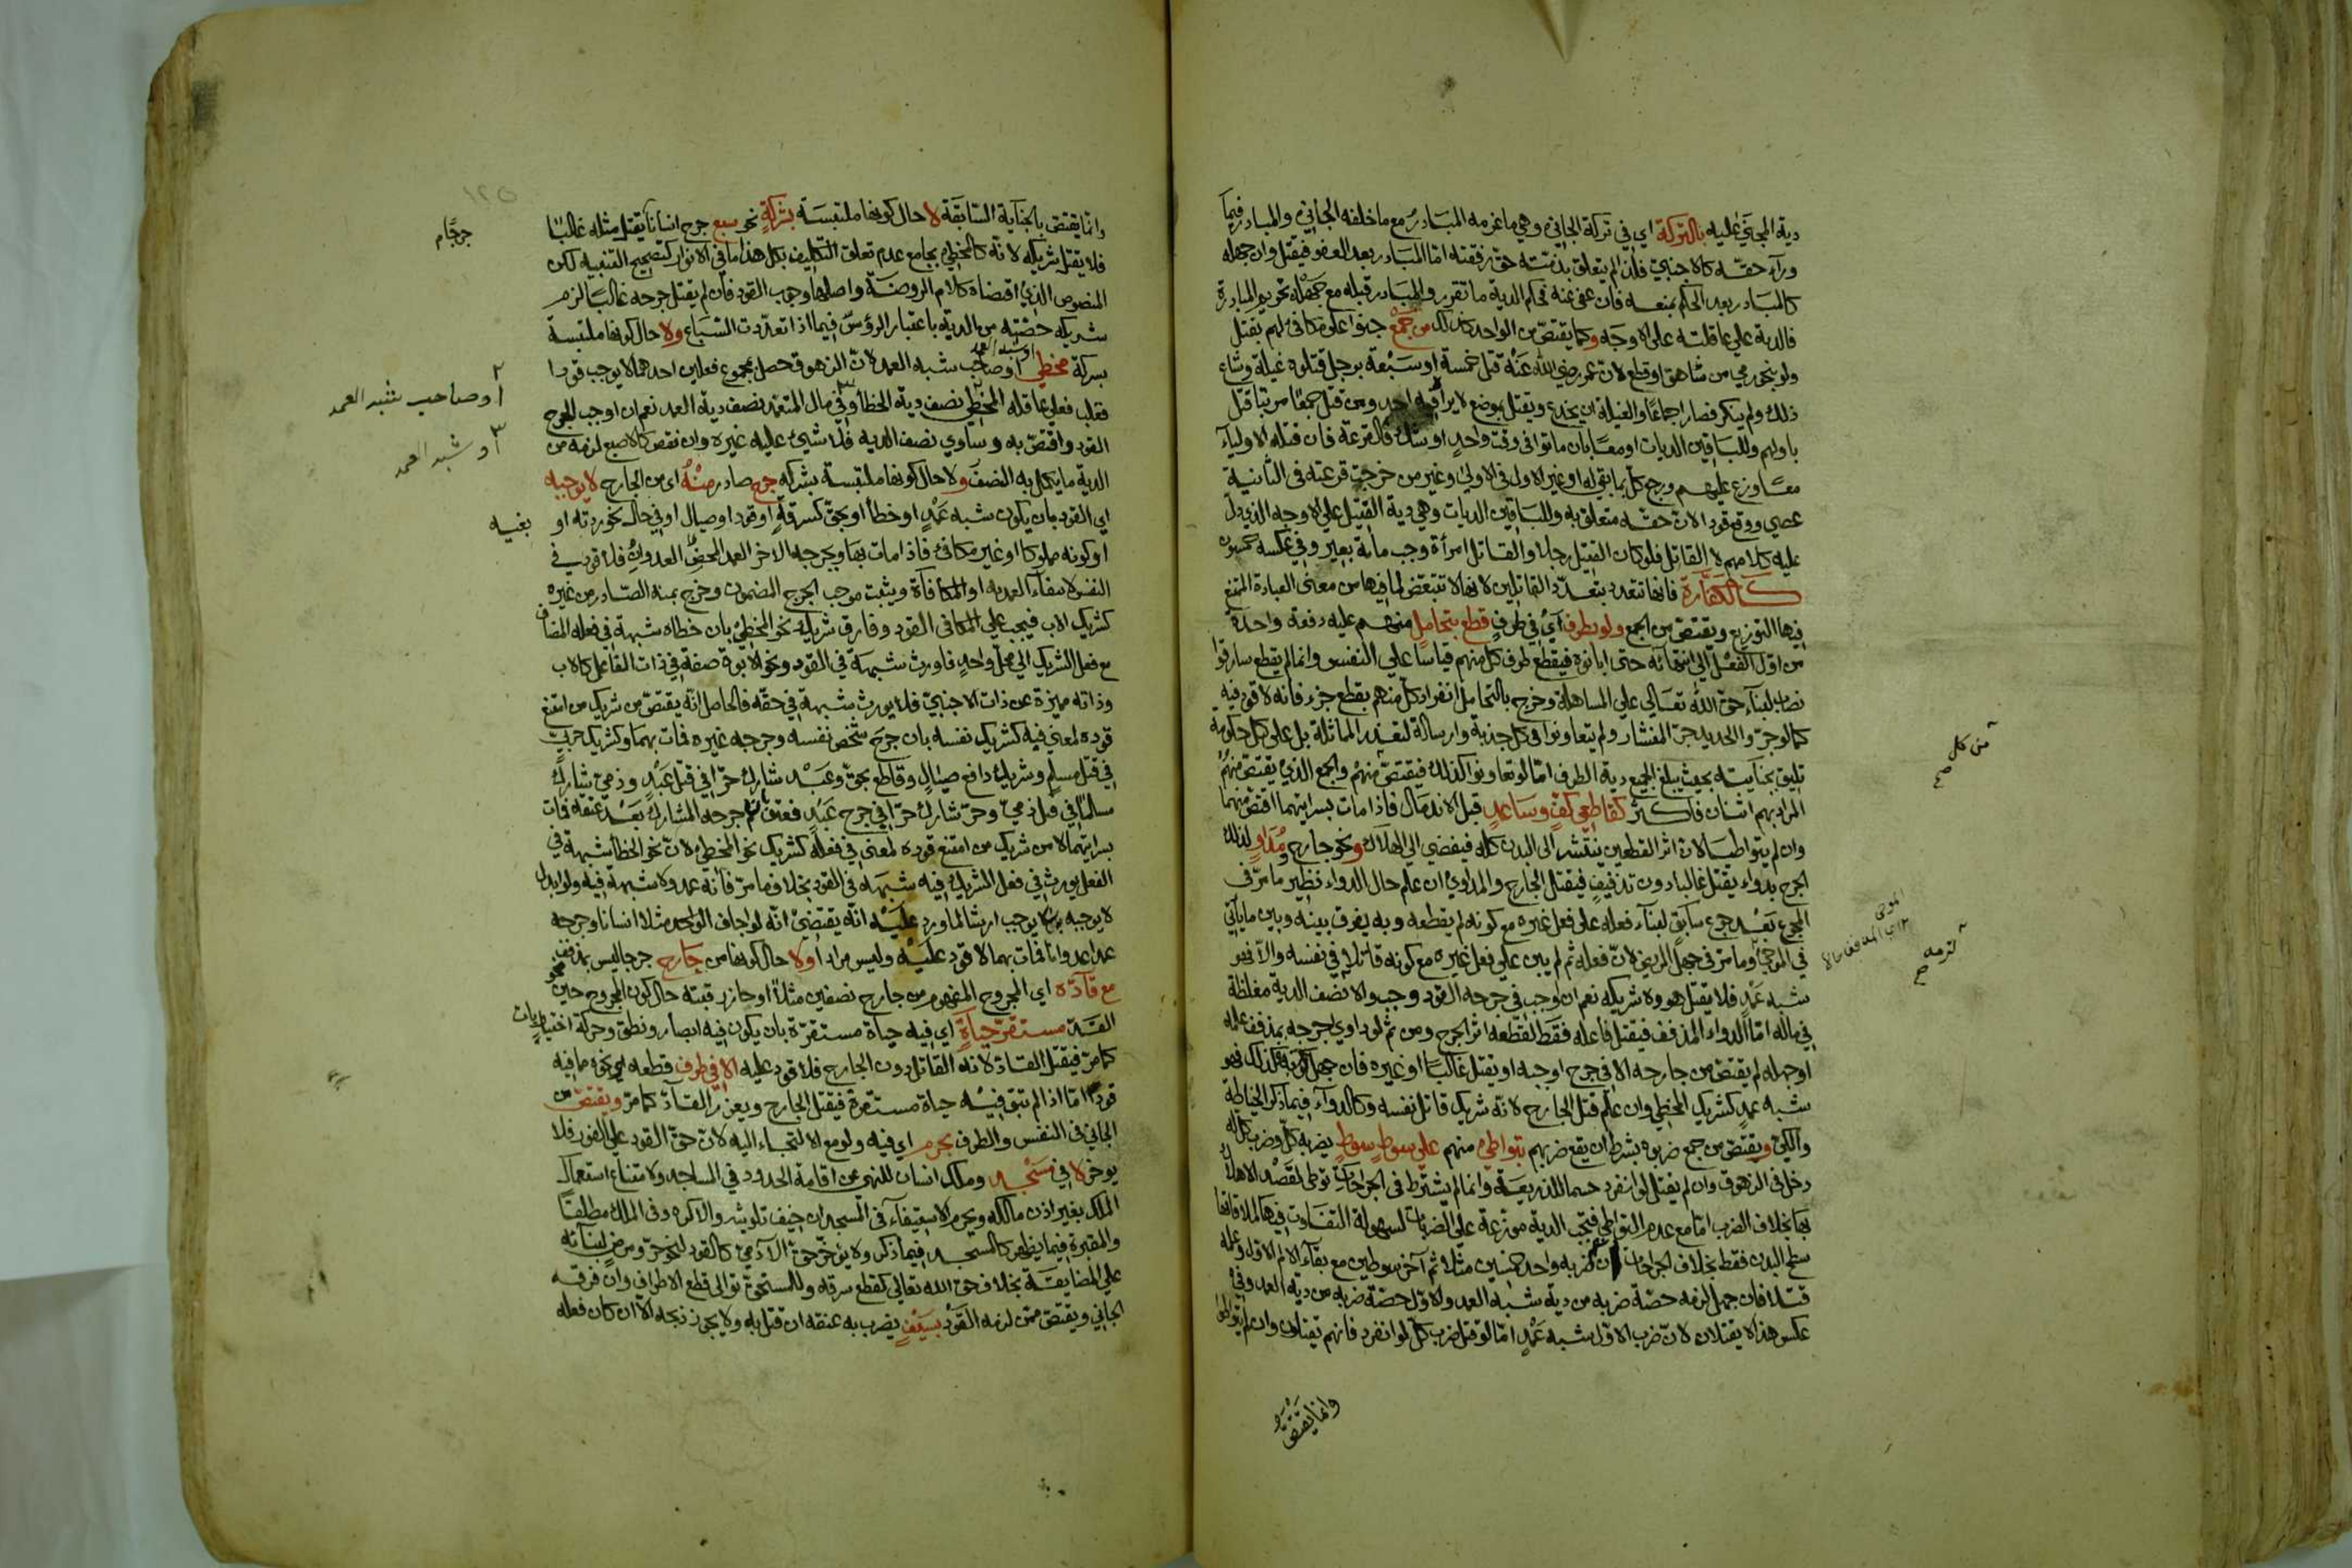 دية المجني عليه بالتركة اي في تركة الجاني وهي ما غرمه المبادر مع ما خلفه الجاني والمبادر فيما
ورآء حقه كالاجنبي فان لم يتعلق بذمته حق رفقته اما المبادر بعد العفو فيقتل وان جهله
كالمبادر بعد الحكم بمنعه فان عفى عنه فحكم الدية ما تقرر والمبادر قبله مع جهله تحريم المبادرة
فالدية على عاقلته على الاوجه وكما يقتص من الواحد كذلك من جمع جنوا على مكافئ لهم بقتل
ولو بنحو رمي من شاهق او قطع لان عمر رضي الله عنه قتل خمسة او سبعة برجل قتلوه غيلة وشاع
ذلك ولم ينكر فصار اجماعا والغيلة ان يخدع ويقتل بموضع لا يراه فيه احد ومن قتل جمعا مرتبا قتل
باولهم وللباقين الديات او معا بان ماتوا في وقت واحد او شك فالقرعة فان قتله الاولياء
معا وزع عليهم ورجع كل بما بقي له او غير الاول في الاولى وغير من خرجت قرعته في الثانية
عصى ووقع قودا لان حقه متعلق به وللباقين الديات وهي دية القتيل على الاوجه الذي دل
عليه كلامهم لا القاتل فلو كان القتيل رجلا والقاتل امرأة وجب مائة بعير وفي عكسه خمسون
كالكفارة فانها تتعدد بتعدد القاتلين لانها لا تتبعض لما فيها من معنى العبادة الممتنع
فيها التوزيع ويقتص من الجمع ولو بطرف اي في طرف قطع بتحامل منهم عليه دفعة واحدة
من اول الفعل الى انتهائه حتى ابانوه فيقطع طرف كل منهم قياسا على النفس وانما لم يقطع سارقوا
نصاب لبناء حق الله تعالى على المساهلة وخرج بالتحامل انفراد كل منهم بقطع جزء فانه لا قود فيه
كما لو جز والحديد جز المنشار ولم يتعاونوا في كل جذبة وارسالة لتعذر المماثلة بل على كل حكومة
تليق بجنايته بحيث يبلغ الجميع دية الطرف اما لو تعاونوا كذلك فيقتص منهم والجمع الذي يقتص منهم
المراد بهم اثنان فاكثر كقاطعي كف وساعد قبل الاندمال فاذا مات بسرايتهما اقتص منهما
وان لم يتواطيا لان اثر القطعين ينتشر الى البدن كله فيفضي الى الهلاك ونحو جارح ومداو لذلك
الجرح بدواء يقتل غالبا دون تذفيف فيقتل الجارح والمداوي ان علم حال الدواء نظير ما مر في
المجوع بعد جوع سابق لبناء فعله على فعل غيره مع كونه لم يقطعه وبه يفرق بينه وبين ما ياتي
في الموحي وما مر في جهل المريض لان فعله ثم لم يبن على فعل غيره مع كونه قاتلا في نفسه والا فهو
شبه عمد فلا يقتل هو ولا شريكه نعم ان اوجب في جرحه القود وجب والا نصف الدية مغلظة
في ماله اما الدواء المذفف فيقتل فاعله فقط لقطعه اثر الجرح ومن ثم لو داوى الجرحه بمذفف علمه
او جهله لم يقتص من جارحه الا في جرح اوجبه او يقتل غالبا او غيره فان جهل كونه كذلك فهو
شبه عمد كشريك المخطئ وان علم قتل الجارح لانه شريك قاتل نفسه وكالدواء فيما ذكر الخياطة
والكي ويقتص من جمع ضربوه بشرط ان يقع ضربهم بتواطئ منهم على سوط سوط يضربه كل وضرب كل له
دخل في الزهوق وان لم يقتل لو انفرد حسما للذريعة وانما لم يشترط في الجراحات تواطئ لقصد الاهلاك
بها بخلاف الضرب اما مع عدم التواطئ فتجب الدية موزعة على الضربات لسهولة التفاوت فيها لملاقاتها
سطح البدن فقط بخلاف الجراحات نعم ان ضربه واحد خمسين مثلا ثم آخر سوطين مع بقاء الالم الاول وعلمه
قتلا فان جهل لزمه حصة ضربه من دية شبه العمد والاول حصة ضربه من دية العمد وفي
عكس هذا لا يقتلان لان ضرب الاول شبه عمد اما لو قتل ضرب كل لو انفرد فانهم يقتلون وان لم يتواطوا
وانما يقتص
من كل صح
لزمه صح
١٢٥
وانما يقتص بالجناية السابقة لا حال كونها ملتبسة بشركة نحو سبع جرح انسانا يقتل مثله غالبا
فلا يقتل شريكه لانه كالمخطئ بجامع عدم تعلق التكليف بكل هذا ما في الانوار كتصحيح التنبيه لكن
المنصوص الذي اقتضاه كلام الروضة واصلها وجوب القود فان لم يقتل جرحه غالبا لزم
شريكه حصته من الدية باعتبار الرؤس فيما اذا تعددت السباع ولا حال كونها ملتبسة
بشركة مخطي او صاحب شبه العمد لان الزهوق حصل بمجموع فعلين احدهما لا يوجب قودا
فغلب فعلى عاقلة المخطئ نصف دية الخطأ وفي مال المتعمد نصف دية العمد نعم ان اوجب الجرح
القود واقتص به وساوي نصف الدية فلا شيء عليه غيره وان نقص كالاصبع لزمه من
الدية ما يكمل به النصف ولا حال كونها ملتبسة بشركة جرح صادر منه اي من الجارح لا يوجبه
اي القود بان يكون شبه عمد او خطأ او بحق كسرقة او قود او صيال او في حال نحو ردته او بغيه
او كونه مملوكا او غير مكافئ فاذا مات بها وبجرحه الاخر العمد المحض العدوان فلا قود في
النفس لانتفاء العمدية او المكافأة ويثبت موجب الجرح المضمون وخرج بمنه الصادر من غيره
كشريك الاب فيجب على المكافئ القود وفارق شريك نحو المخطئ بان خطاه شبهة في فعله المضاف
مع فعل الشريك الى محل واحد فاورث شبهة في القود ونحو الابوة صفة في ذات الفاعل كالاب
وذاته مميزة عن ذات الاجنبي فلا يورث شبهة في حقه فالحاصل انه يقتص من شريك من امتنع
قوده لمعنى فيه كشريك نفسه بان جرح شخص نفسه وجرحه غيره فمات بهما وكشريك حربي
في قتل مسلم وشريك دافع صيال وقاطع بحق وعبد شارك حرا في قتل عبد وذمي شارك
مسلما في قتل ذمي وحر شارك حرا في جرح عبد فعتق ثم جرحه المشارك بعد عتقه فمات
بسرايتهما لا من شريك من امتنع قوده لمعنى في فعله كشريك نحو المخطئ لان نحو الخطأ شبهة في
الفعل يورث في فعل الشريك فيه شبهة في القود بخلاف ما مر فانه عمد ولا شبهة فيه ولو ابدل
لا يوجبه بلا يوجب ارشا لما ورد عليه انه يقتضي انه لو اجاف الواحد مثلا انسانا وجرحه
عمدا عدوانا فمات بهما لا قود عليه وليس مرادا ولا حال كونها من جارح جرحا ليس بمذفف
مع قاده اي المجروح المفهوم من جارح نصفين مثلا او جاز رقبته حال كون المجروح حين نحو
القد مستقر حياة اي فيه حياة مستقرة بان يكون فيه ابصار ونطق وحركة اختياريات
كما مر فيقتل القاد لانه القاتل دون الجارح فلا قود عليه الا في طرف قطعه او نحوه مما فيه
قود اما اذا لم تبق فيه حياة مستقرة فيقتل الجارح ويعزر القاد كما مر ويقتص من
الجاني في النفس والطرف بحرم اي فيه ولو مع الالتجاء اليه لان حق القود على الفور فلا
يوخر لا في مسجد وملك انسان للنهي عن اقامة الحدود في المساجد ولامتناع استعمال
الملك بغير اذن مالكه ويحرم الاستيفاء في المسجد ان خيف تلويثه والا كره وفي الملك مطلقا
والمقبرة فيما يظهر كالمسجد فيما ذكر ولا يؤخر حق الآدمي كالقود لنحو حر ومرض لبنائه
على المضايقة بخلاف حق الله تعالى كقطع سرقة وللمستحق توالي قطع الاطراف وان فرقه
الجاني ويقتص ممن لزمه القود بسيف يضرب به عنقه ان قتل به ولا يجوز ذبحه الا ان كان فعله
جرحا م
٢ أو صاحب شبه العمد
٣ أو شبه العمد